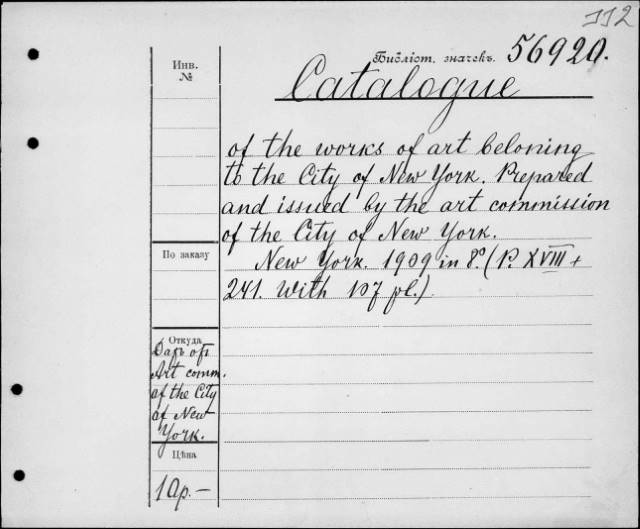 112
Библіот. значекъ. 56920.
Инв.
№
Catalogue
of the works of art beloning
to the City of New York. Prepared
and issued by the art commission
of the City of New York.
New York. 1909 in 8º. (P. XVIII +
241. With 107 pl.)
По заказу
Откуда
Даръ отъ
Art comm.
of the City
of New
York.
Цѣна
10р.—